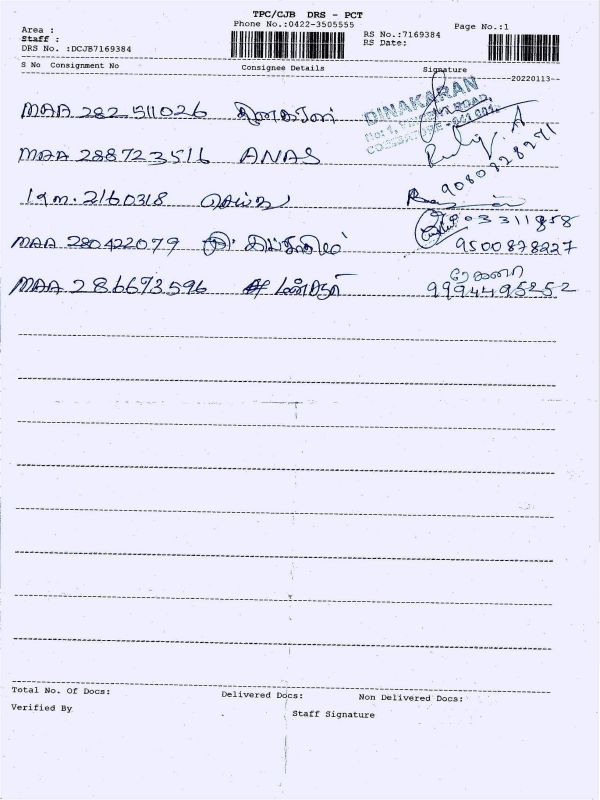 TPC/CJB DRS - PCT
Phone No.:0422-3505555
Page No.:1
Area :
Staff :
DRS No. :DCJB7169384
RS No.:7169384
RS Date:
S No Consignment No Consignee Details Signature
20220113
MAA 282511026 தினகரன்
DINAKARAN
MAA 288723516 ANAS
9080828291
2160318
MAA 280422079
9500878227
MAA 286673596
9994495252
Total No. Of Docs: Delivered Docs: Non Delivered Docs:
Verified By Staff Signature